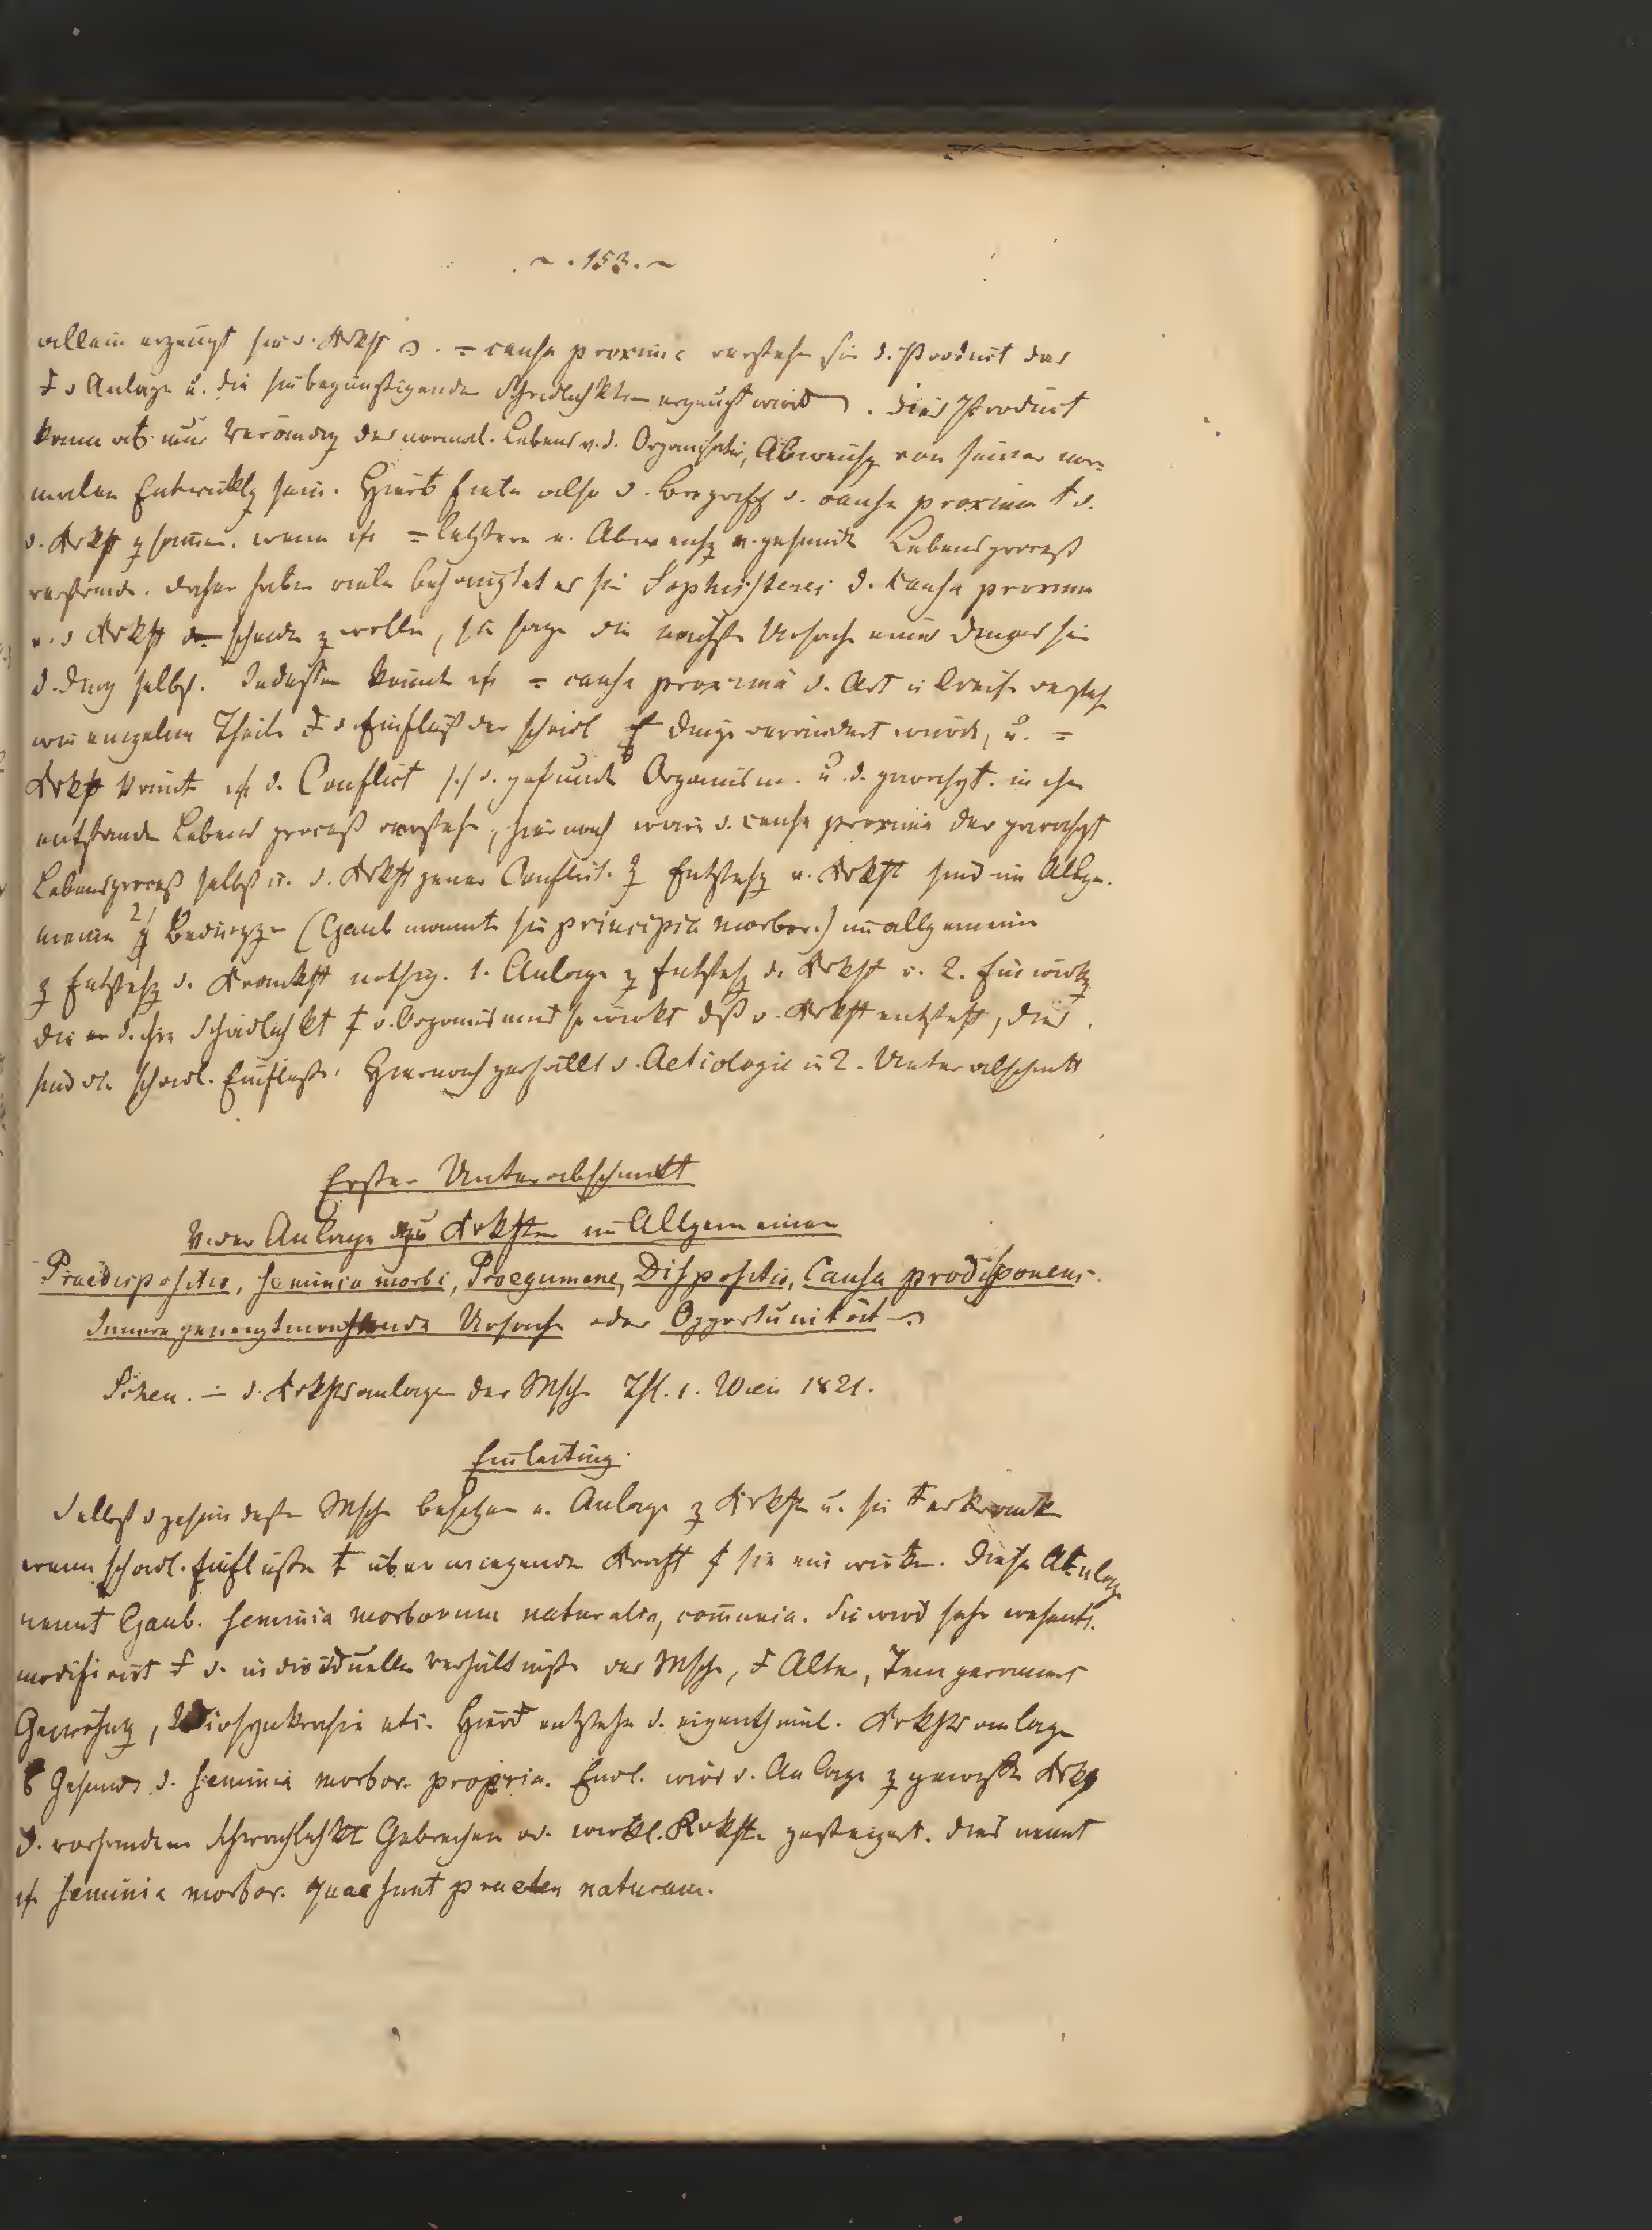 ~ . 153. ~
allein erzeugt sie d. Krkht . = causa proxima verstehn sie d. Product das
d Anlage u. die sie begünstigende Schädlichkten erzeugt wird . Dies Product
kann nur Verändrg des normal. Lebens v. d. Organisatio, Abweichg von seiner nor=
malen Entwicklg sein. Hier fiele also d. Begriff d. causa proxima † d.
d. Krkht zsammen. wenn ich = letztere e. Abweichg v. gesunde Lebensproceß
verstände. daher habe viele behauptet es sei Sophisterei d. Causa proxima
v. d Krkht scheide z wolle, sie sage die nächste Ursache eines Dinges sei
d. Ding selbst. Indessen könnte ich = causa proxima d. Art u Weise versteh
wie einzelne Theile d Einfluß der schädl Dinge verändert würd, u. =
Krkht könnte ich d. Conflict d. gesunde Organism. u. d. in ihm
entstande Lebens proceß verstehe, hiernach wäre d. causa proxima der
Lebensproceß selbst u. d. Krkht jener Conflict. Z Entstehg v. Krkht sind im Allge.
meine 2 Bedingge (Gaub nannte sie principia morbor.) im allgemeine
z Entstehg d. Krankht nöthig. 1. Anlage z Entstehg d. Krkht u. 2. Einwirkg
die Schädlichkt d. Organismus so wirkt dß d. Krkht entsteht, dies
sind die schädl. Einflüße. Hiernach zerfällt d. Aetiologie in 2. Unterabschnitt
Erster Unterabschnitt
V. der Anlage zu Krkhten im Allgemeinen
Praedispositio, seminia morbi, Proegumene, Dispositio, Causa prodisponens.
Innere geneigtmachende Ursache oder Opportunität
d. Krkhtsanlage der Msche Thl. 1. Wien 1821.
Einleitung.
Selbst d gesündeste Msche besitzen e. Anlage z Krkht u. sie erkrankte
wenn schädl. Einflüße † überwiegende Kraft sie einwirke. Diese Anlage
nennt Gaub. seminia morborum naturalia, communia. Sie wird sehr wesentl.
modificirt d. individuelle Verhältniße der Msche, Alter, Temperament
Gewöhng, Idiosynkrasie etc. Hier entstehn d. eigenthüml. Krkhtsanlage
Gesunde d. seminia morbor. propria. Endl. wird d. Anlage z gewisse Krkh
d. vorhandene Schwächlichkt Gebrechen od. wirkl. Krkhte gesteigert. dies nennt
ich seminia morbor. quae sunt praeter naturam.